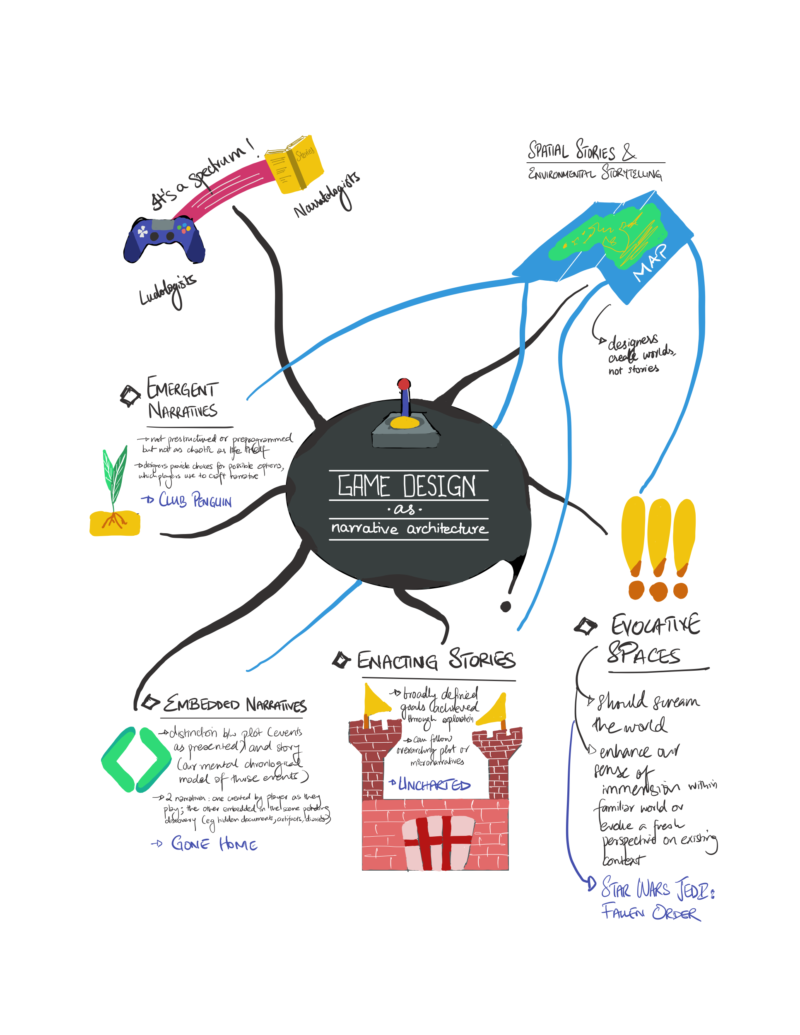 It's a spectrum!
Stories
Narratologists
Ludologists
SPATIAL STORIES &
ENVIRONMENTAL STORYTELLING
MAP
designers
create worlds,
not stories
EMERGENT
NARRATIVES
not prestructured or preprogrammed
but not as chaotic as life itself
designers provide choices for possible options,
which players use to craft narrative
CLUB PENGUIN
GAME DESIGN
as
narrative architecture
EVOCATIVE
SPACES
should scream
the world
enhance our
sense of
immersion within
familiar world or
evoke a fresh
perspective on existing
context
STAR WARS JEDI:
FALLEN ORDER
ENACTING STORIES
broadly defined
goals achieved
through exploration
can follow
overarching plot or
micronarratives
UNCHARTED
EMBEDDED NARRATIVES
distinction b/w plot (events
as presented) and story
(our mental chronological
model of those events)
2 narratives: one created by player as they
play; the other embedded in the scene
discovery (eg hidden documents, artifacts,
GONE HOME